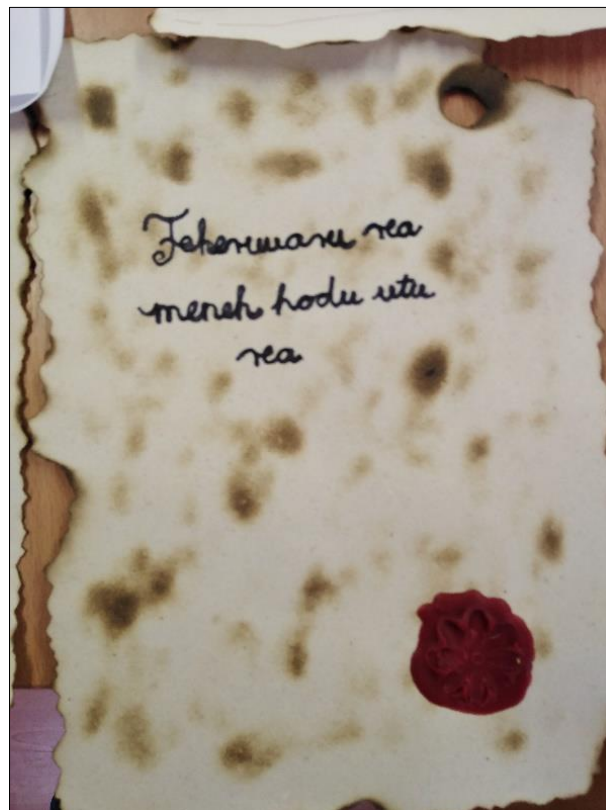 Feheruuaru rea
meneh hodu utu
rea